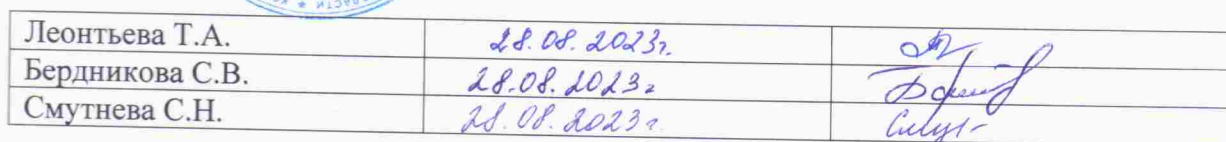 Леонтьева Т.А. 28.08.2023г.
Бердникова С.В. 28.08.2023г
Смутнева С.Н. 28.08.2023г